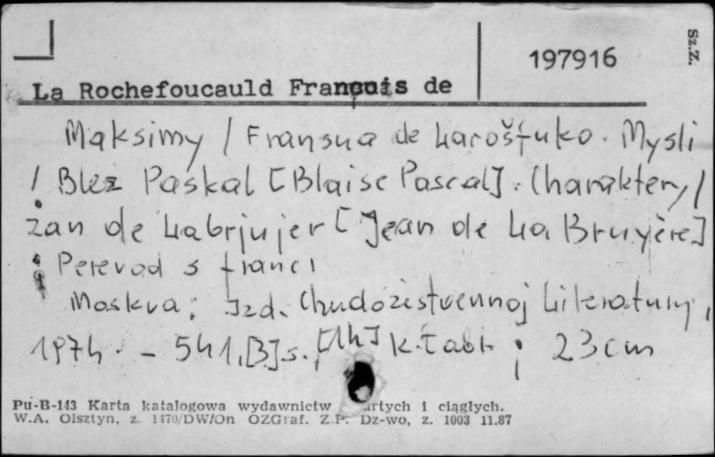 197916
Sz.Z.
La Rochefoucauld François de
Maksimy / Fransua de Larošfuko. Mysli
/ Blez Paskal [Blaise Pascal]. Charaktery /
Žan de Labrjujer [Jean de La Bruyère]
; Perevod s franc.
Moskva : Izd. Chudožestvennoj Literatury,
1974. - 541,[3]s.,[14] k.tabl. ; 23 cm
Pu-B-143 Karta katalogowa wydawnictw artych i ciągłych.
W.A. Olsztyn, z. 1470/DW/On OZGraf. Z.P. Dz-wo, z. 1003 11.87